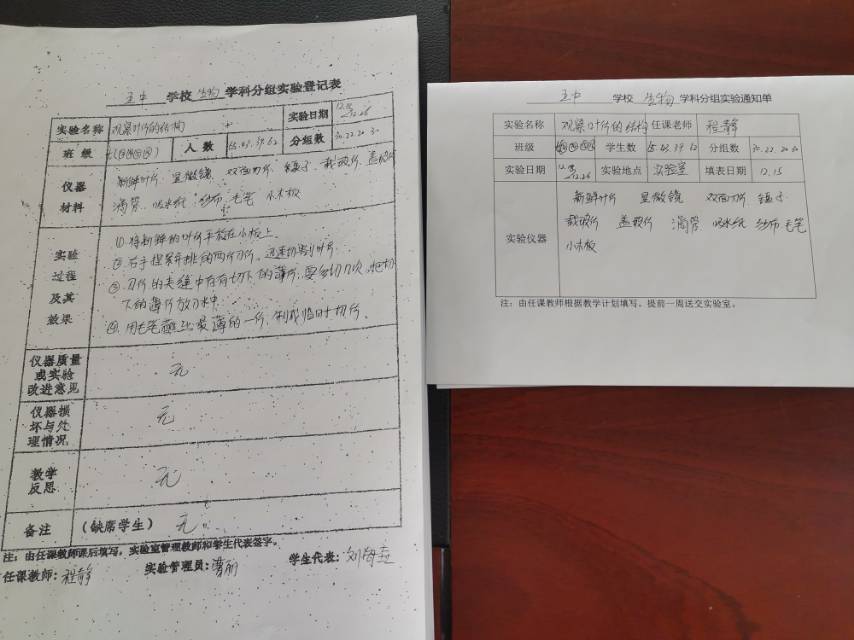 玉中 学校 生物 学科分组实验登记表
实验名称 观察叶片的结构 实验日期 12.26
班级 人数 65.63.39.62 分组数 30.22.20.30
仪器材料 新鲜叶片 显微镜 双面刀片 镊子 载玻片 盖玻片
滴管 吸水纸 纱布 毛笔 小木板
实验过程及其效果 ① 将新鲜的叶片平放在小板上
② 右手捏紧并排的两片刀片,迅速切割叶片
③ 刀片的夹缝中存有切下的薄片,要多切几次,把切
下的薄片放水中
④ 用毛笔蘸出最薄的一片,制成临时切片。
仪器质量或实验改进意见 无
仪器损坏与处理情况 无
教学反思 无
备注 (缺席学生) 无
注:由任课教师课后填写,实验室管理教师和学生代表签字。
任课教师:程静 实验管理员:曹丽 学生代表:刘
学校 生物 学科分组实验通知单
实验名称 观察叶片的结构 任课老师 程静
班级 学生数 分组数 30.22.20.30
实验日期 12.26 实验地点 实验室 填表日期 12.15
实验仪器 新鲜叶片 显微镜 双面刀片 镊子
载玻片 盖玻片 滴管 吸水纸 纱布 毛笔
小木板
注:由任课教师根据教学计划填写,提前一周送交实验室。